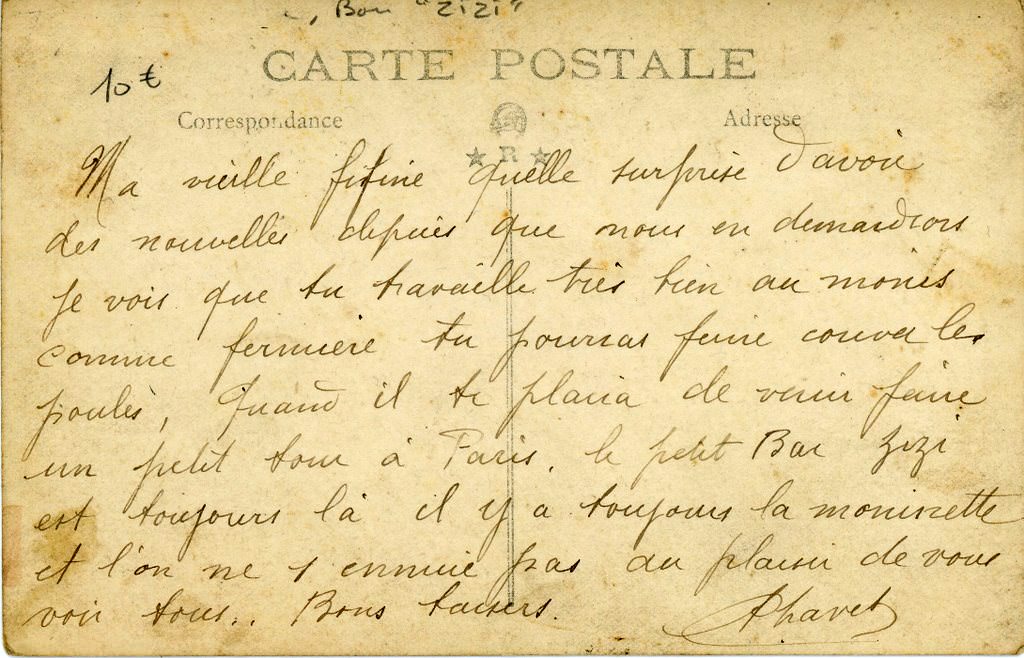 , Bar "ZiZi"
CARTE POSTALE
10 €
Correspondance
Adresse
R
Ma vieille fifine quelle surprise d'avoir
des nouvelles depuis que nous en demandions
je vois que tu travaille très bien au moins
comme fermière tu pourras faire couver les
poules, Quand il te plaira de venir faire
un petit tour à Paris. le petit Bar Zizi
est toujours là il y a toujours la
et l'on ne s ennuie pas au plaisir de vous
voir tous.. Bons baisers.